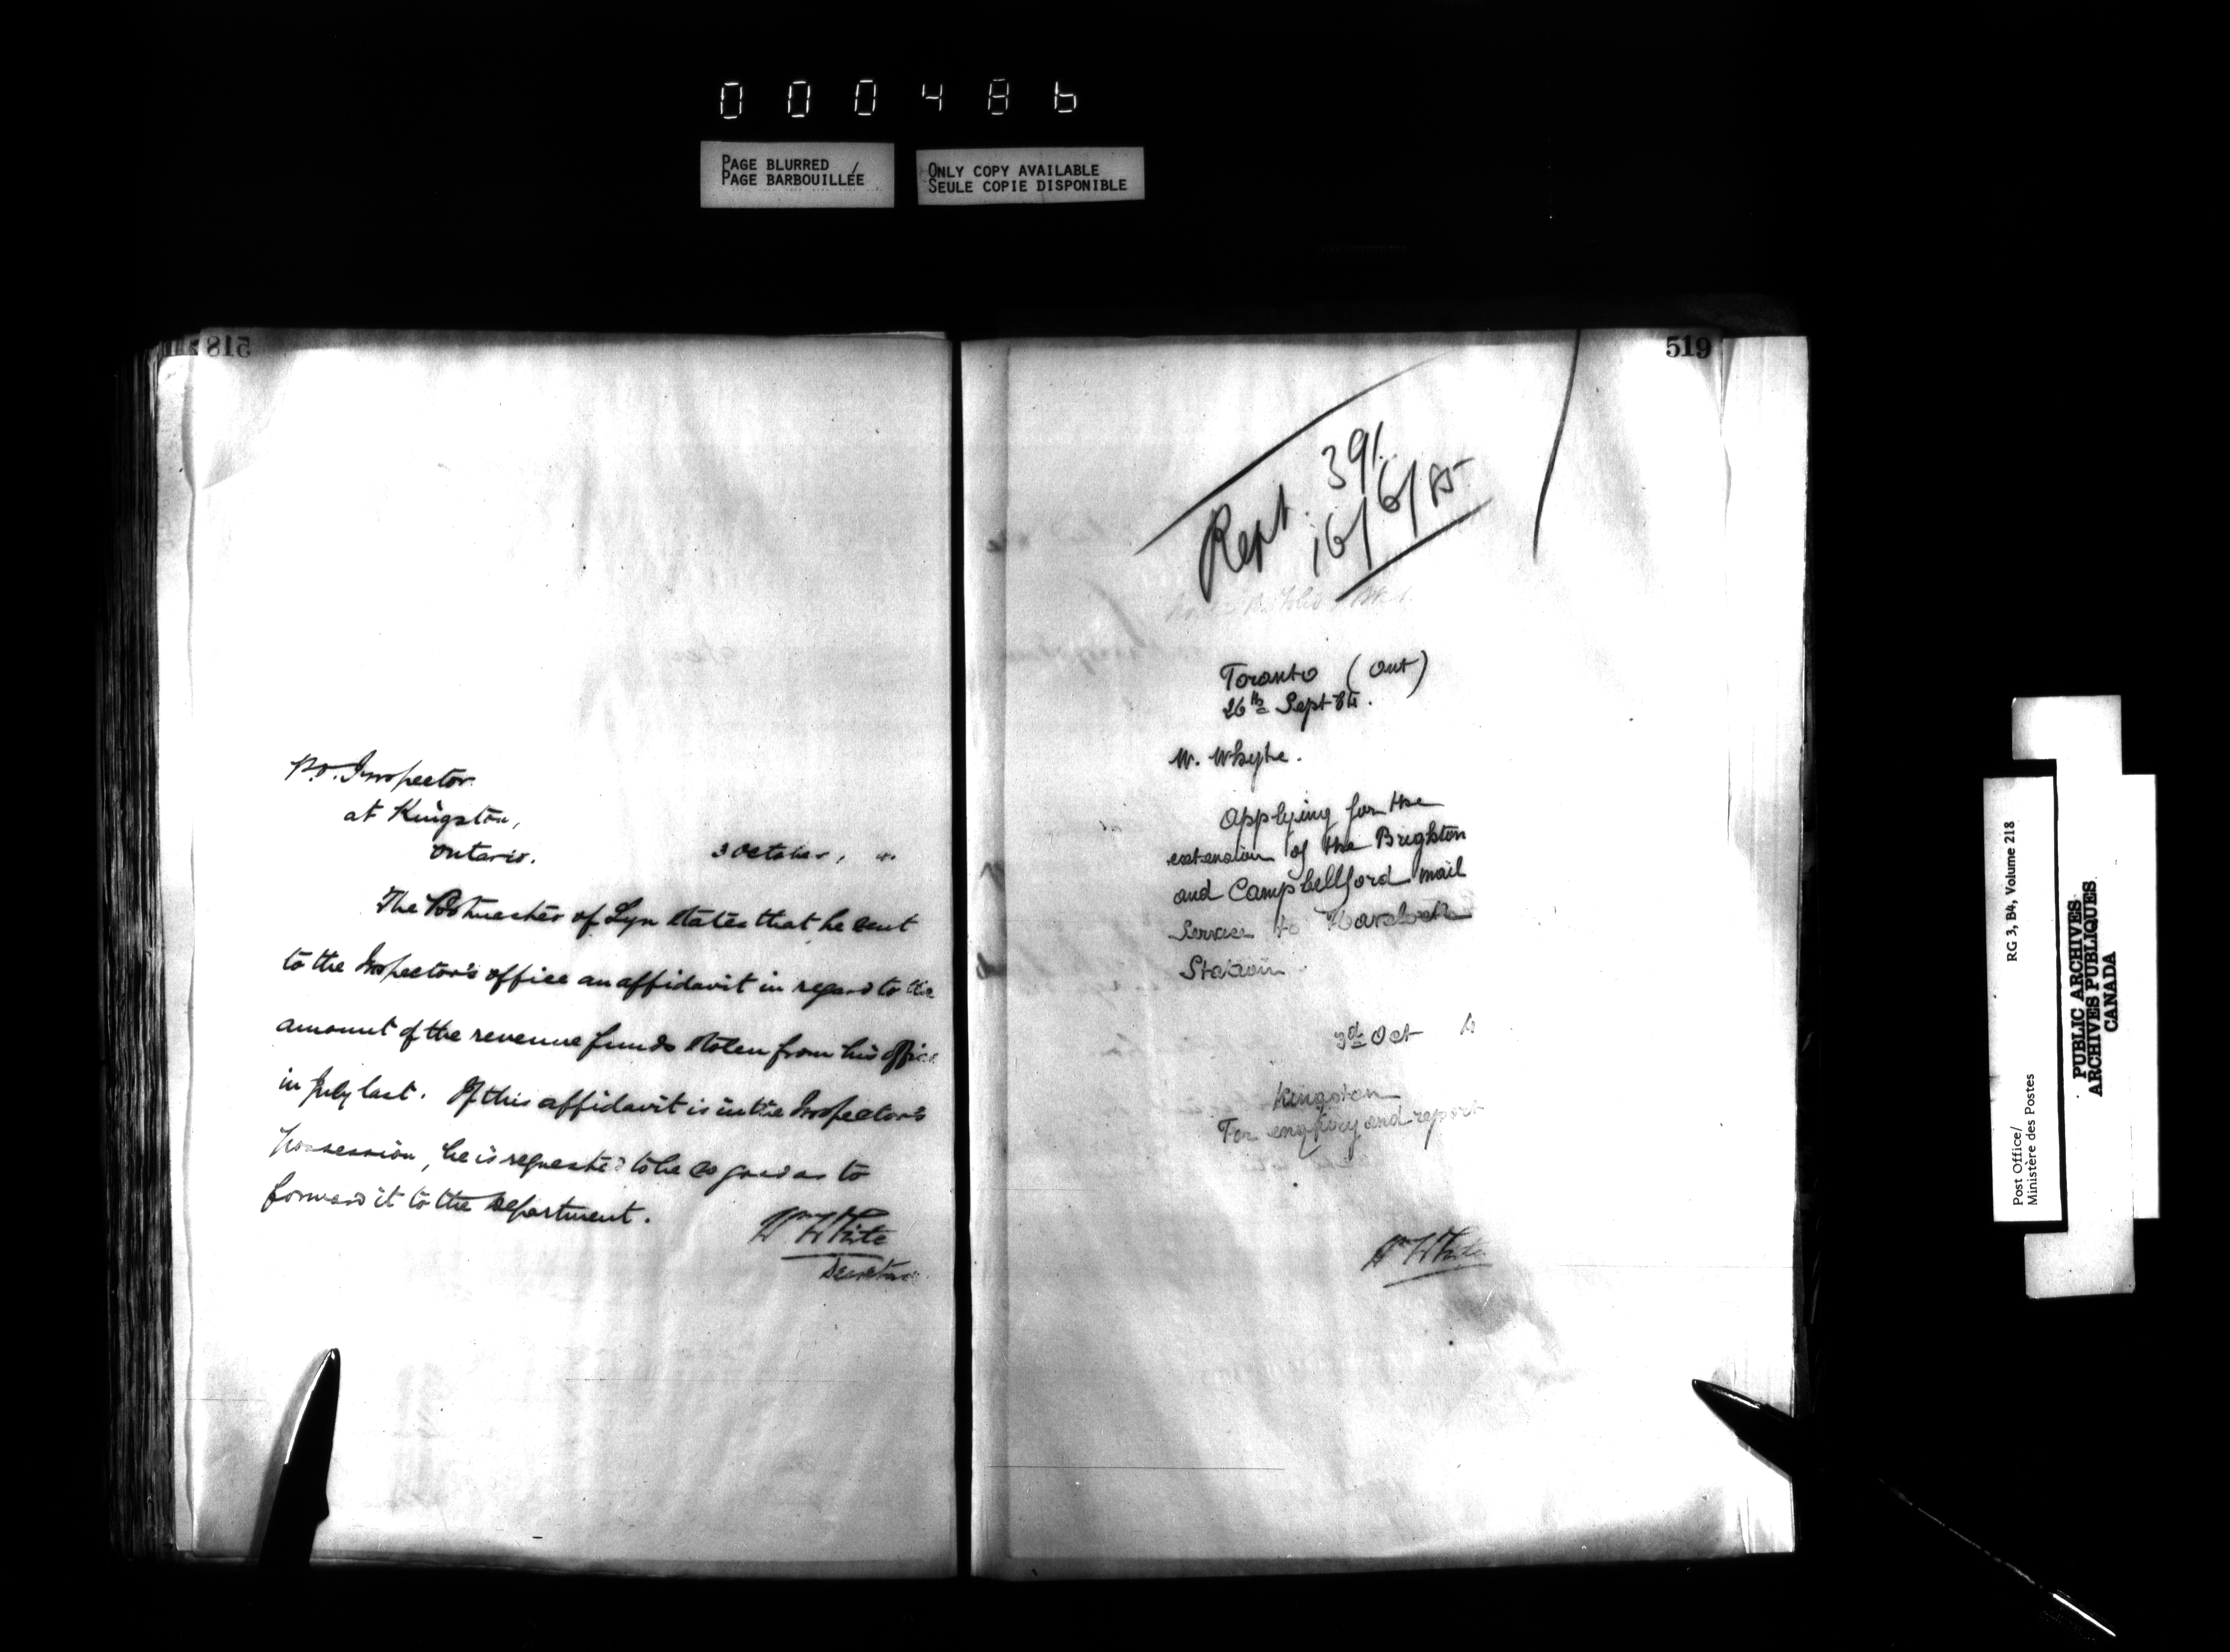 000486
PAGE BLURRED
PAGE BARBOUILLÉE
ONLY COPY AVAILABLE
SEULE COPIE DISPONIBLE
518
P.O. Inspector
at Kingston,
Ontario.
3 October,
The Postmaster of Lyn states that he sent
to the Inspector's office an affidavit in regard to the
amount of the revenue funds stolen from his office
in July last. If this affidavit is in the Inspector's
possession, he is requested to be so good as to
forward it to the Department.
Wm White
Secretary
519
Rept. 391
16/6/85
Toronto (Ont)
26th Sept 84.
W. Whyte.
Applying for the
extension of the Brighton
and Campbellford mail
Service to Havelock
Station.
3d Oct
Kingston
For enquiry and report
Wm White
Post Office/
Ministère des Postes
RG 3, B4, Volume 218
PUBLIC ARCHIVES
ARCHIVES PUBLIQUES
CANADA